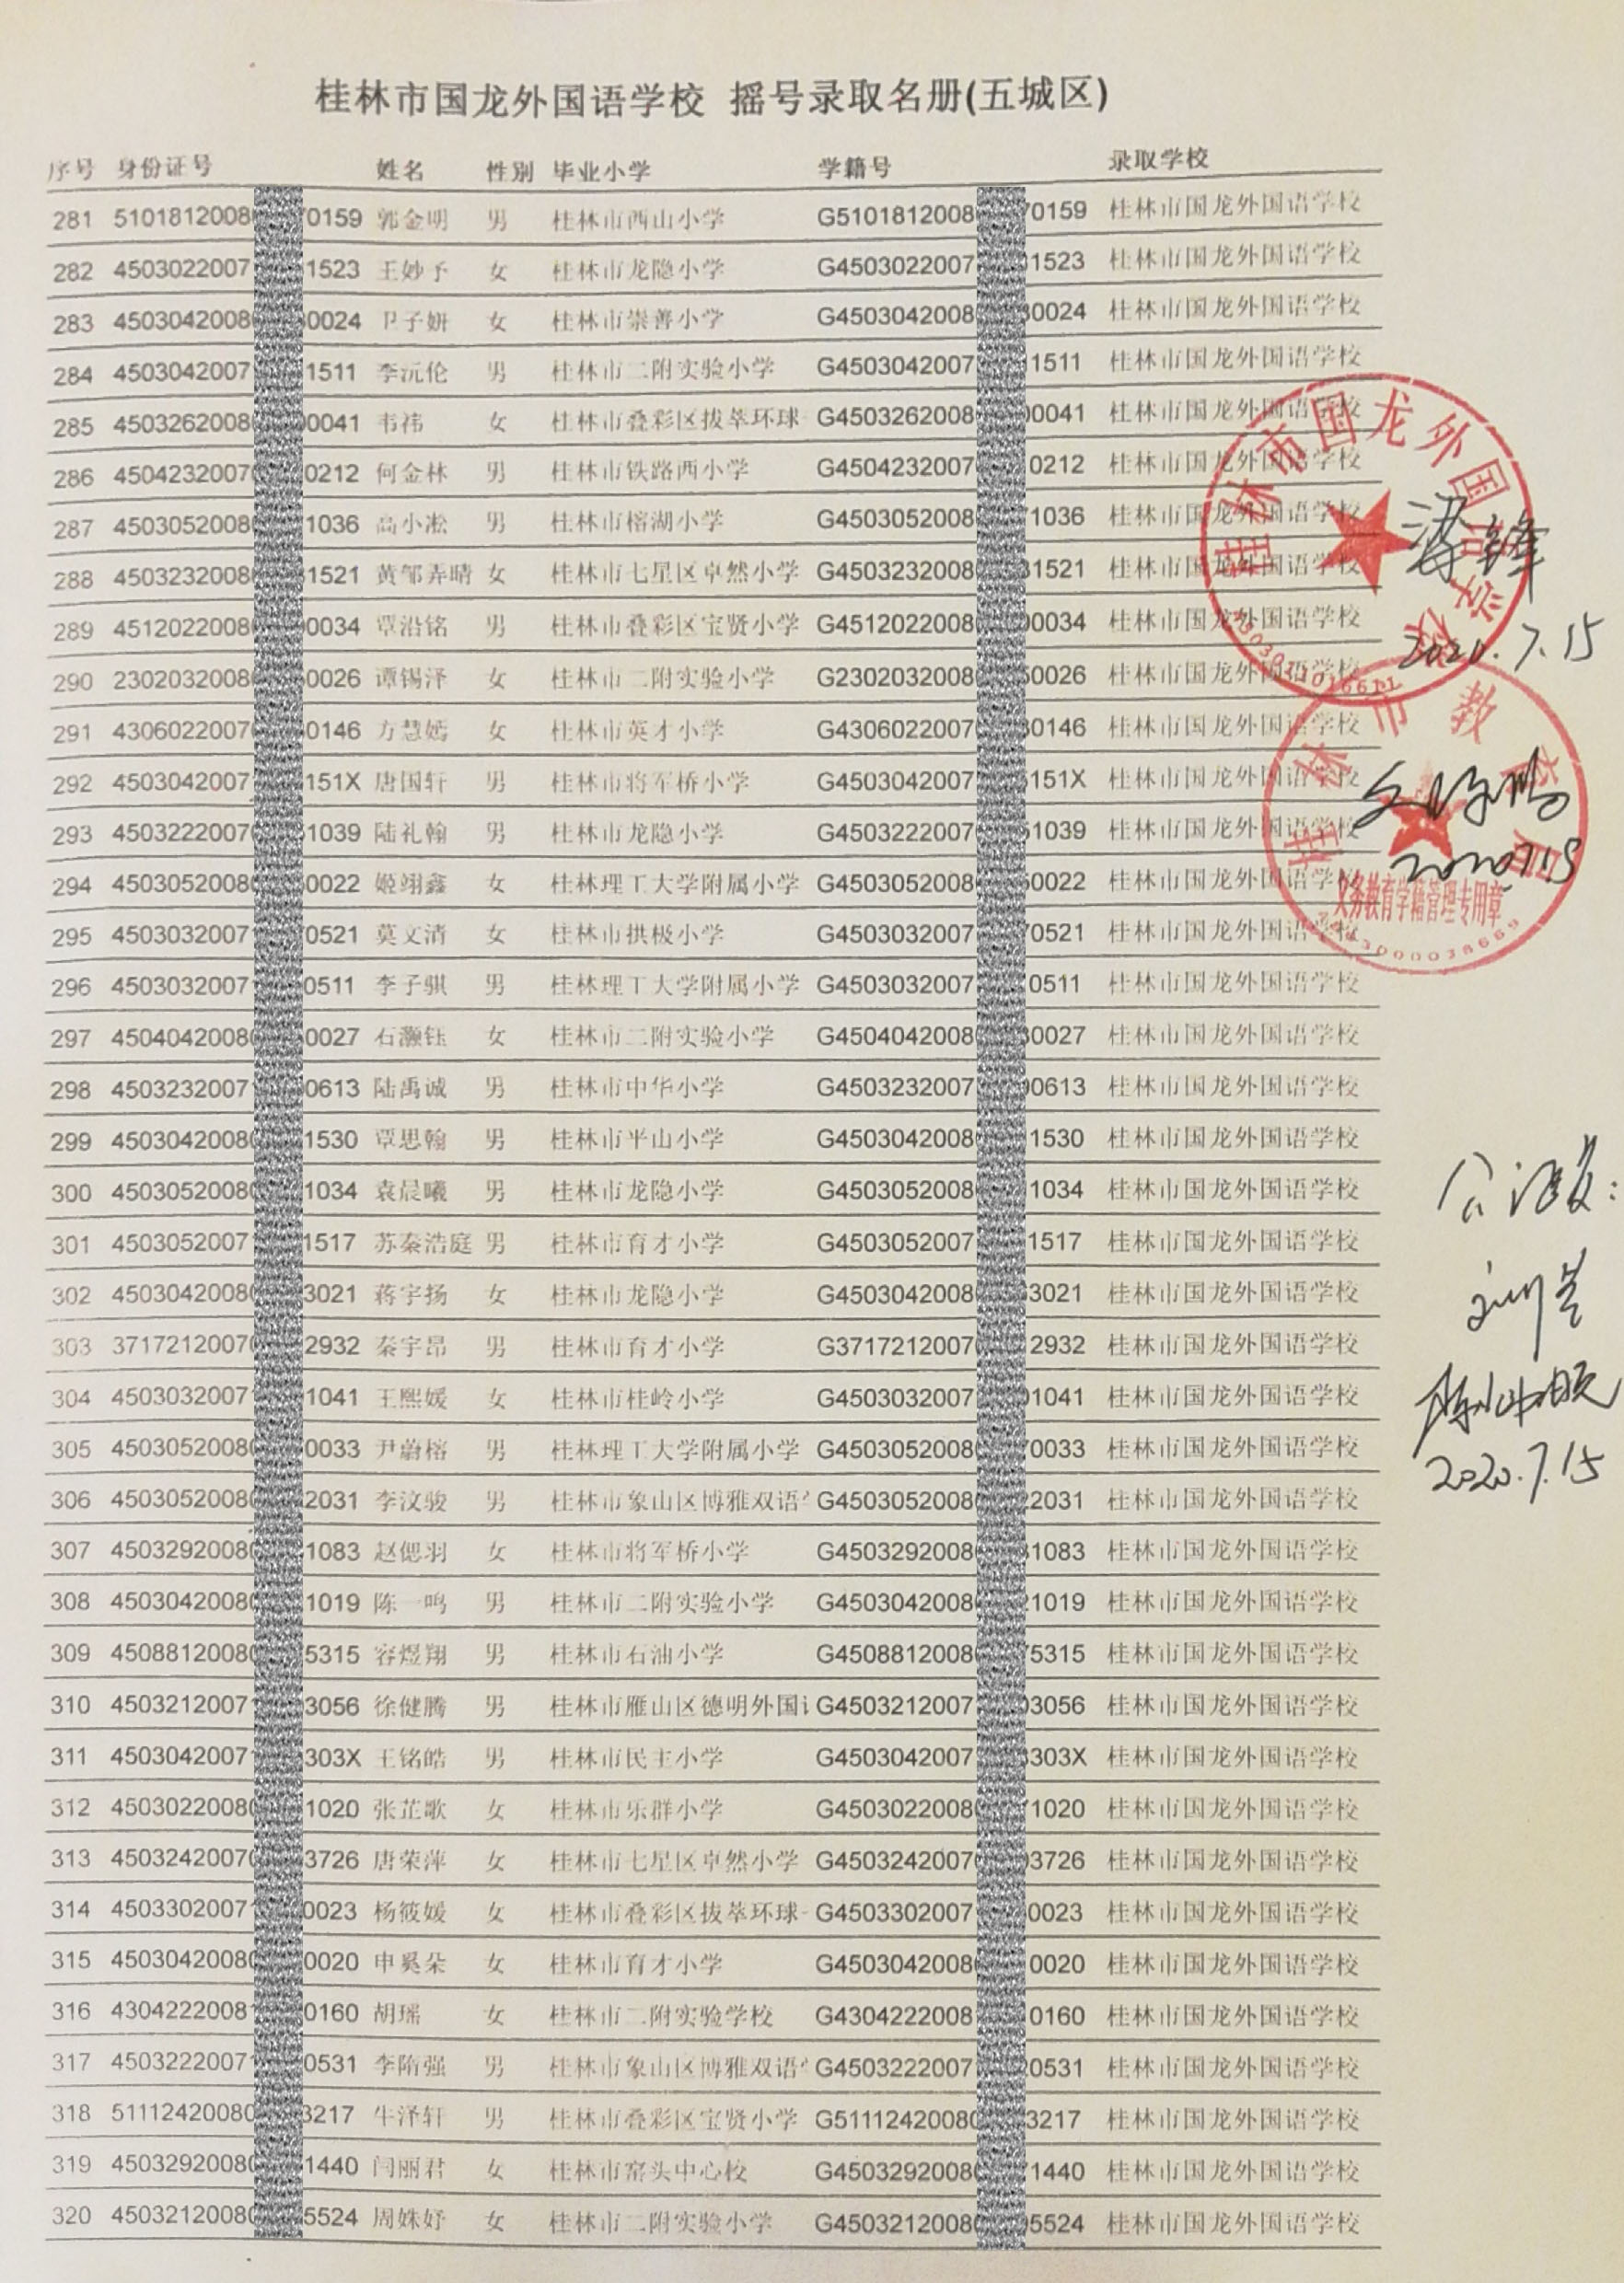 桂林市国龙外国语学校 摇号录取名册(五城区)
序号 身份证号 姓名 性别 毕业小学 学籍号 录取学校
281 5101812008 0159 郭金明 男 桂林市西山小学 G5101812008 70159 桂林市国龙外国语学校
282 4503022007 1523 王妙予 女 桂林市龙隐小学 G4503022007 1523 桂林市国龙外国语学校
283 4503042008 0024 卫子妍 女 桂林市崇善小学 G4503042008 0024 桂林市国龙外国语学校
284 4503042007 1511 李沅伦 男 桂林市二附实验小学 G4503042007 1511 桂林市国龙外国语学校
285 4503262008 0041 韦祎 女 桂林市叠彩区拔萃环球 G4503262008 0041 桂林市国龙外国语学校
286 4504232007 0212 何金林 男 桂林市铁路西小学 G4504232007 0212 桂林市国龙外国语学校
287 4503052008 1036 高小淞 男 桂林市榕湖小学 G4503052008 1036 桂林市国龙外国语学校
288 4503232008 1521 黄邹弄晴 女 桂林市七星区卓然小学 G4503232008 1521 桂林市国龙外国语学校
289 4512022008 0034 覃沿铭 男 桂林市叠彩区宝贤小学 G4512022008 0034 桂林市国龙外国语学校
290 2302032008 0026 谭锡泽 女 桂林市二附实验小学 G2302032008 0026 桂林市国龙外国语学校
291 4306022007 0146 方慧嫣 女 桂林市英才小学 G4306022007 0146 桂林市国龙外国语学校
292 4503042007 151X 唐国轩 男 桂林市将军桥小学 G4503042007 151X 桂林市国龙外国语学校
293 4503222007 1039 陆礼翰 男 桂林市龙隐小学 G4503222007 1039 桂林市国龙外国语学校
294 4503052008 0022 姬翊鑫 女 桂林理工大学附属小学 G4503052008 0022 桂林市国龙外国语学校
295 4503032007 0521 莫文清 女 桂林市拱极小学 G4503032007 0521 桂林市国龙外国语学校
296 4503032007 0511 李子骐 男 桂林理工大学附属小学 G4503032007 0511 桂林市国龙外国语学校
297 4504042008 0027 石灏钰 女 桂林市二附实验小学 G4504042008 0027 桂林市国龙外国语学校
298 4503232007 0613 陆禹诚 男 桂林市中华小学 G4503232007 0613 桂林市国龙外国语学校
299 4503042008 1530 覃思翰 男 桂林市平山小学 G4503042008 1530 桂林市国龙外国语学校
300 4503052008 1034 袁晨曦 男 桂林市龙隐小学 G4503052008 1034 桂林市国龙外国语学校
301 4503052007 1517 苏秦浩庭 男 桂林市育才小学 G4503052007 1517 桂林市国龙外国语学校
302 4503042008 3021 蒋宇扬 女 桂林市龙隐小学 G4503042008 3021 桂林市国龙外国语学校
303 3717212007 2932 秦宇昂 男 桂林市育才小学 G3717212007 2932 桂林市国龙外国语学校
304 4503032007 1041 王熙媛 女 桂林市桂岭小学 G4503032007 1041 桂林市国龙外国语学校
305 4503052008 0033 尹蔚榕 男 桂林理工大学附属小学 G4503052008 0033 桂林市国龙外国语学校
306 4503052008 2031 李汶骏 男 桂林市象山区博雅双语 G4503052008 2031 桂林市国龙外国语学校
307 4503292008 1083 赵偲羽 女 桂林市将军桥小学 G4503292008 1083 桂林市国龙外国语学校
308 4503042008 1019 陈一鸣 男 桂林市二附实验小学 G4503042008 1019 桂林市国龙外国语学校
309 4508812008 5315 容煜翔 男 桂林市石油小学 G4508812008 5315 桂林市国龙外国语学校
310 4503212007 3056 徐健腾 男 桂林市雁山区德明外国 G4503212007 3056 桂林市国龙外国语学校
311 4503042007 303X 王铭皓 男 桂林市民主小学 G4503042007 303X 桂林市国龙外国语学校
312 4503022008 1020 张芷歌 女 桂林市乐群小学 G4503022008 1020 桂林市国龙外国语学校
313 4503242007 3726 唐荣萍 女 桂林市七星区卓然小学 G4503242007 3726 桂林市国龙外国语学校
314 4503302007 0023 杨筱媛 女 桂林市叠彩区拔萃环球 G4503302007 0023 桂林市国龙外国语学校
315 4503042008 0020 申奚朵 女 桂林市育才小学 G4503042008 0020 桂林市国龙外国语学校
316 4304222008 0160 胡瑶 女 桂林市二附实验学校 G4304222008 0160 桂林市国龙外国语学校
317 4503222007 0531 李隋强 男 桂林市象山区博雅双语 G4503222007 0531 桂林市国龙外国语学校
318 5111242008 3217 牛泽轩 男 桂林市叠彩区宝贤小学 G5111242008 3217 桂林市国龙外国语学校
319 4503292008 1440 闫丽君 女 桂林市窑头中心校 G4503292008 1440 桂林市国龙外国语学校
320 4503212008 5524 周姝妤 女 桂林市二附实验小学 G4503212008 5524 桂林市国龙外国语学校
桂林市国龙外国语学校
梁锋
2020.7.15
桂林市教育局
20200715
义务教育学籍管理专用章
公证处:
2020.7.15